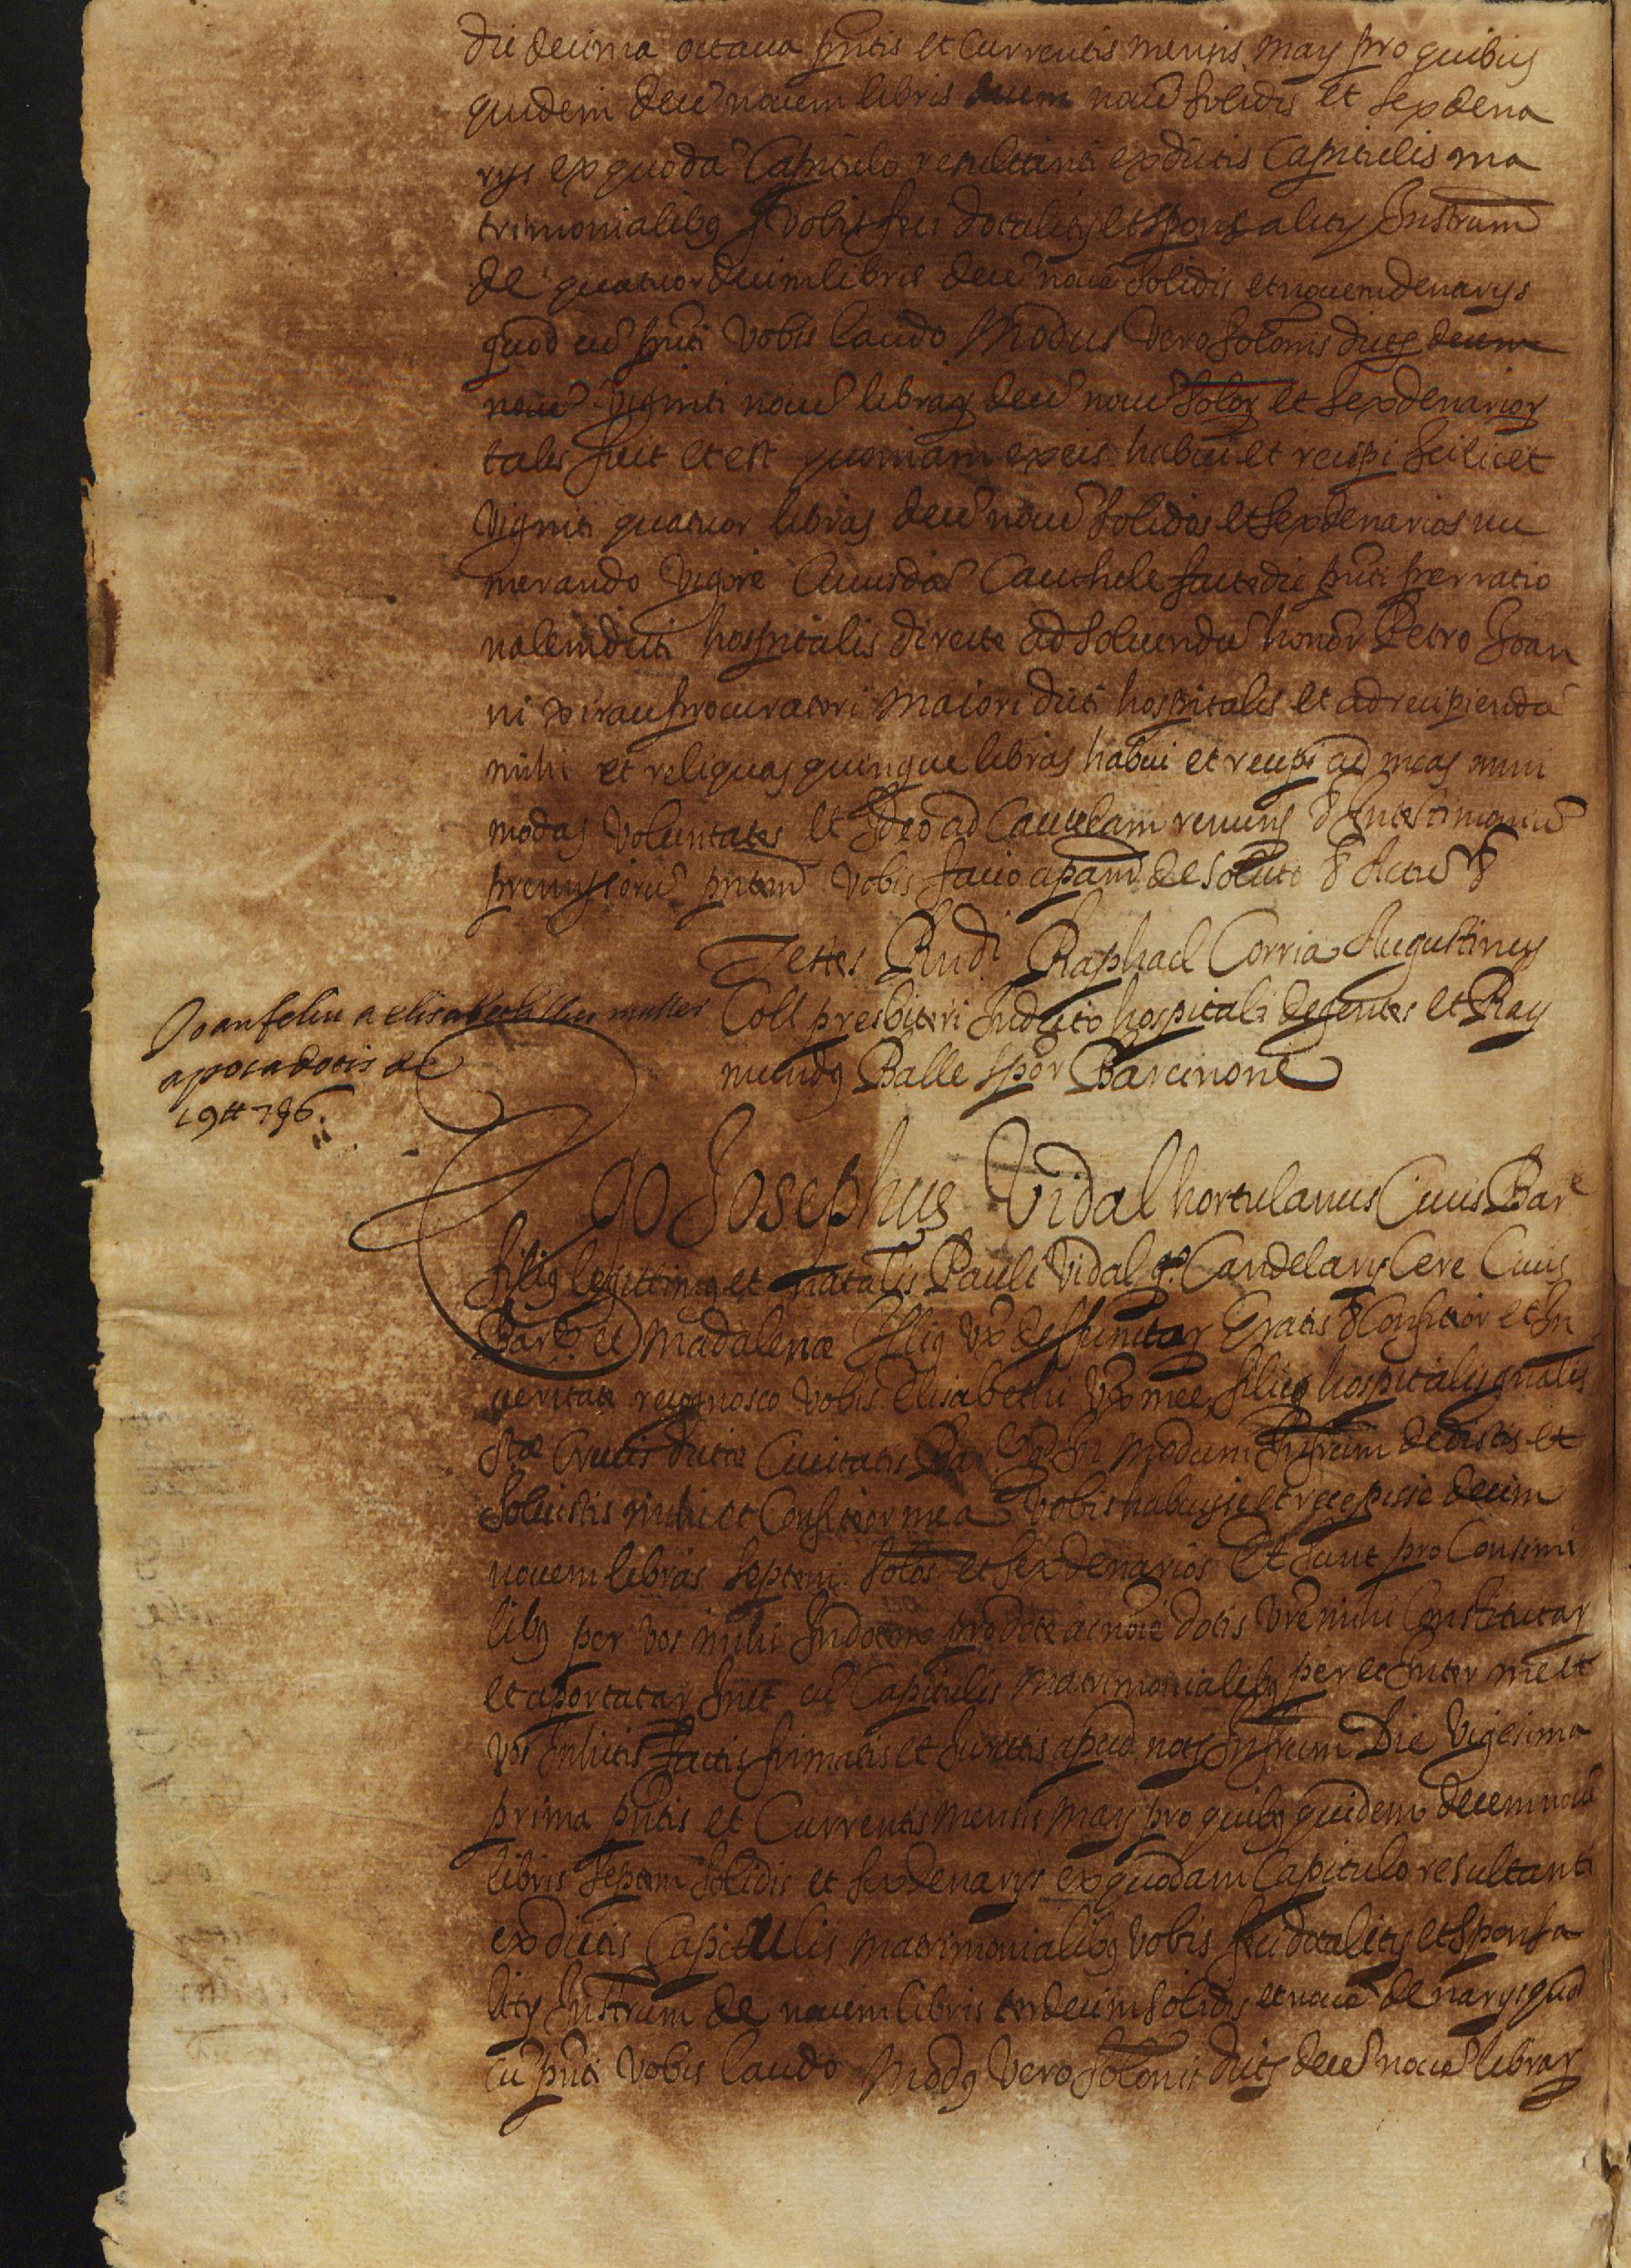 die decima octaua pñtis et Currentis mensis may pro quibus
quidem decẽ nouem libris nouẽ solidis et sex dena
rys ex quodã Capitulo resultanti ex dictis Capitulis ma
trimonialibȝ vobis feci dotalitÿ et sponsalitÿ Instrum̃
de quatuordecim libris decẽ nouẽ solidis et nouem denarys
quod cũ pñti vobis laudo Modus vero solonis dictȝ decem
nouẽ viginti nouẽ librarȝ decẽ nouẽ solorȝ et sex denarior
talis fuit et est quoniam ex eis habui et recepi scilicet
viginti quatuor libras decẽ nouẽ solidos et sex denarios nu
merando vigore Cuiusdã Cauthele facte die pñti per ratio
nalem dicti hospitalis directe ad soluendũ honor Petro Joan
ni xirau procuratori maiori dicti hospitalis et ad recipiendã
mihi et reliquas quinque libras habui et recepi ad meas omni
modas voluntates Et Ideo ad Cautelam renuns & In testimoniũ
premissorũ pñtem vobis facio apam̃ de soluto & Actũ &
Testes Rndi Raphael Corria Augustinus
Coll presbiteri In dicto hospitali degentes et Ray
mundȝ Balle spor Barcinone
Joan feliu a elisabeth sua muller
apoca dotis de
19 ₶ 7 s 6
Ego Josephus Vidal hortulanus Ciuis Barᵉ
filiȝ legittimȝ et natalis Pauli Vidal qᵒ Candelarÿ Cere Ciuis
Barᵉ et Madalenæ Illiȝ vx̃ defunctar Gratis & Confiteor et In
veritate recognosco vobis Elisabethi vx̃ mee filieqȝ hospitalis gñalis
Stæ Crucis dictæ Ciuitatis Bar qd In modum Infrum dedistis et
soluistis mihi et Confiteor me a vobis habuisse et recepisse decim
nouem libras septem solos et sex denarios Et sunt pro Consimi
libȝ per vos mihi In dotem pro dote ac nõie dotis vre mihi Constitutar
et aportatar Inet cũ Capitulis matrimonialibȝ per et Inter me et
vos Inhitis factis firmatis et Iuratis apud nots Infrum Die vigesima
prima pñtis et Currentis mensis may pro quibȝ quidem decem nouẽ
libris septem solidis et sex denarys ex quodam Capitulo resultanti
ex dictis Capitulis matrimonialibȝ vobis feci dotalitÿ et sponsa
litÿ Instrum de nouem libris tredecim solidis et nouẽ denarys quod
cũ pñti vobis laudo Modȝ vero solonis dictȝ decẽ nouẽ librar